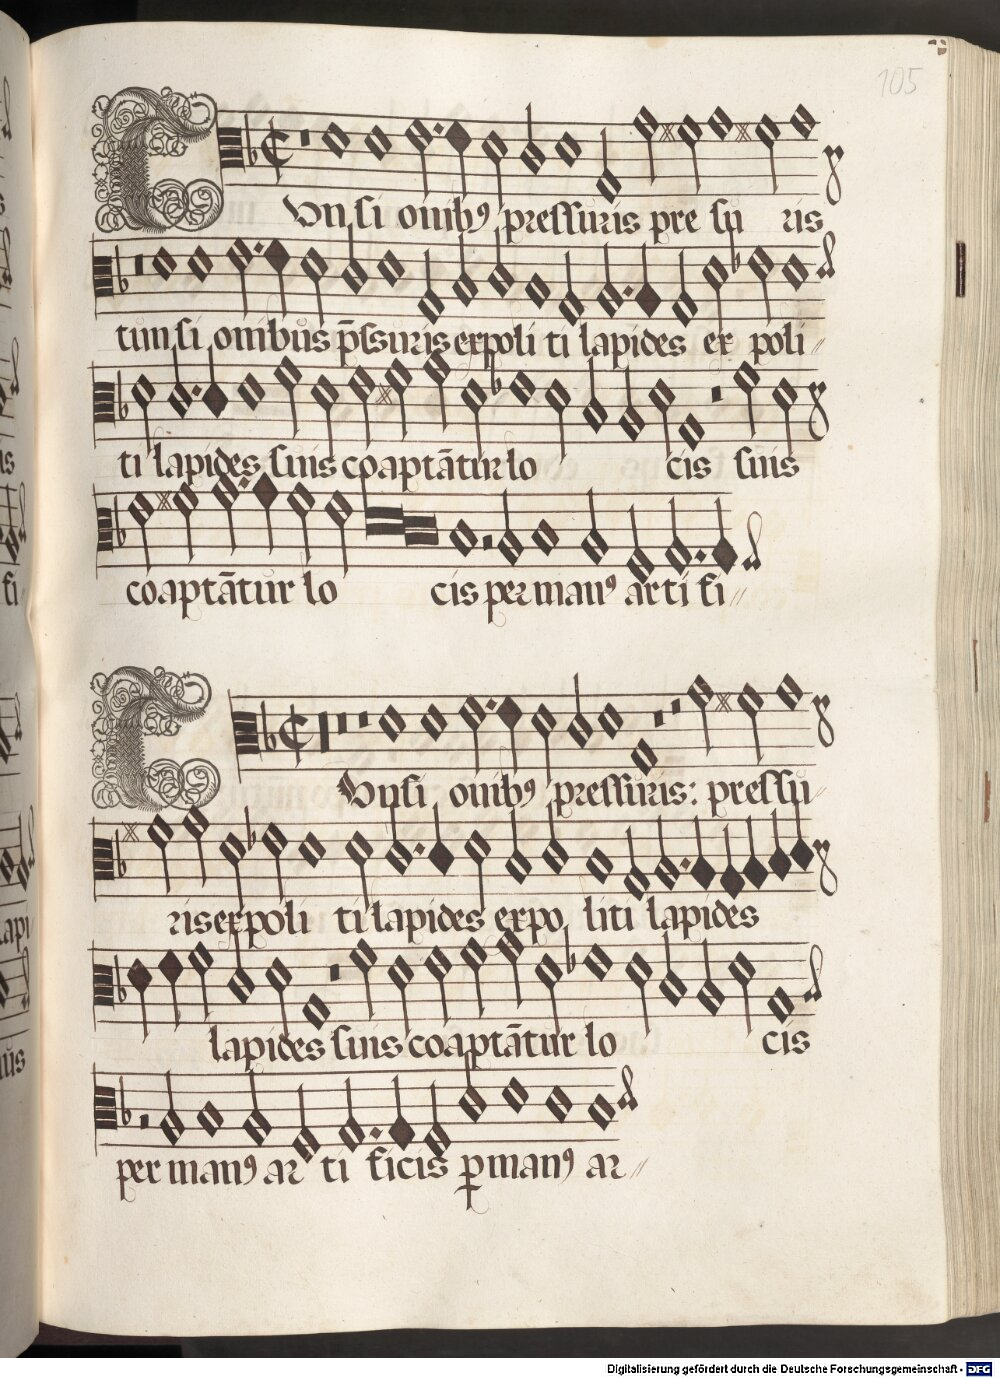 105
TVnsi oĩnibꝰ pressuris pre su ris
tunsi oĩnibus p̃ssuris expoliti lapides ex poli
ti lapides suis coaptãtur lo cis suis
coaptãtur lo cis per manꝰ arti fi
TVnsi oĩnibꝰ pressuris: pressu
ris expoli ti lapides expo liti lapides
lapides suis coaptãtur lo cis
per manꝰ ar ti ficis ꝑ manꝰ ar
Digitalisierung gefördert durch die Deutsche Forschungsgemeinschaft - DFG